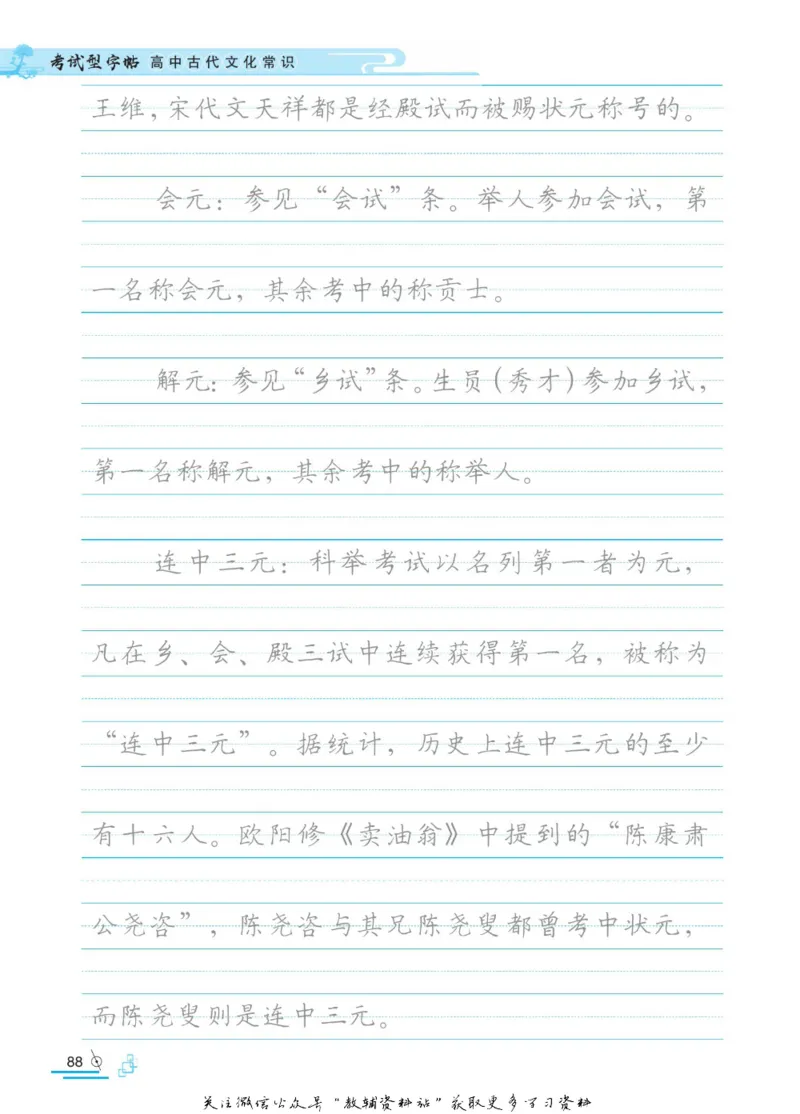 考试型字帖 高中古代文化常识
王维，宋代文天祥都是经殿试而被赐状元称号的。
会元：参见“会试”条。举人参加会试，第
一名称会元，其余考中的称贡士。
解元：参见“乡试”条。生员（秀才）参加乡试，
第一名称解元，其余考中的称举人。
连中三元：科举考试以名列第一者为元，
凡在乡、会、殿三试中连续获得第一名，被称为
“连中三元”。据统计，历史上连中三元的至少
有十六人。欧阳修《卖油翁》中提到的“陈康肃
公尧咨”，陈尧咨与其兄陈尧叟都曾考中状元，
而陈尧叟则是连中三元。
88
关注微信公众号“教辅资料站”获取更多学习资料